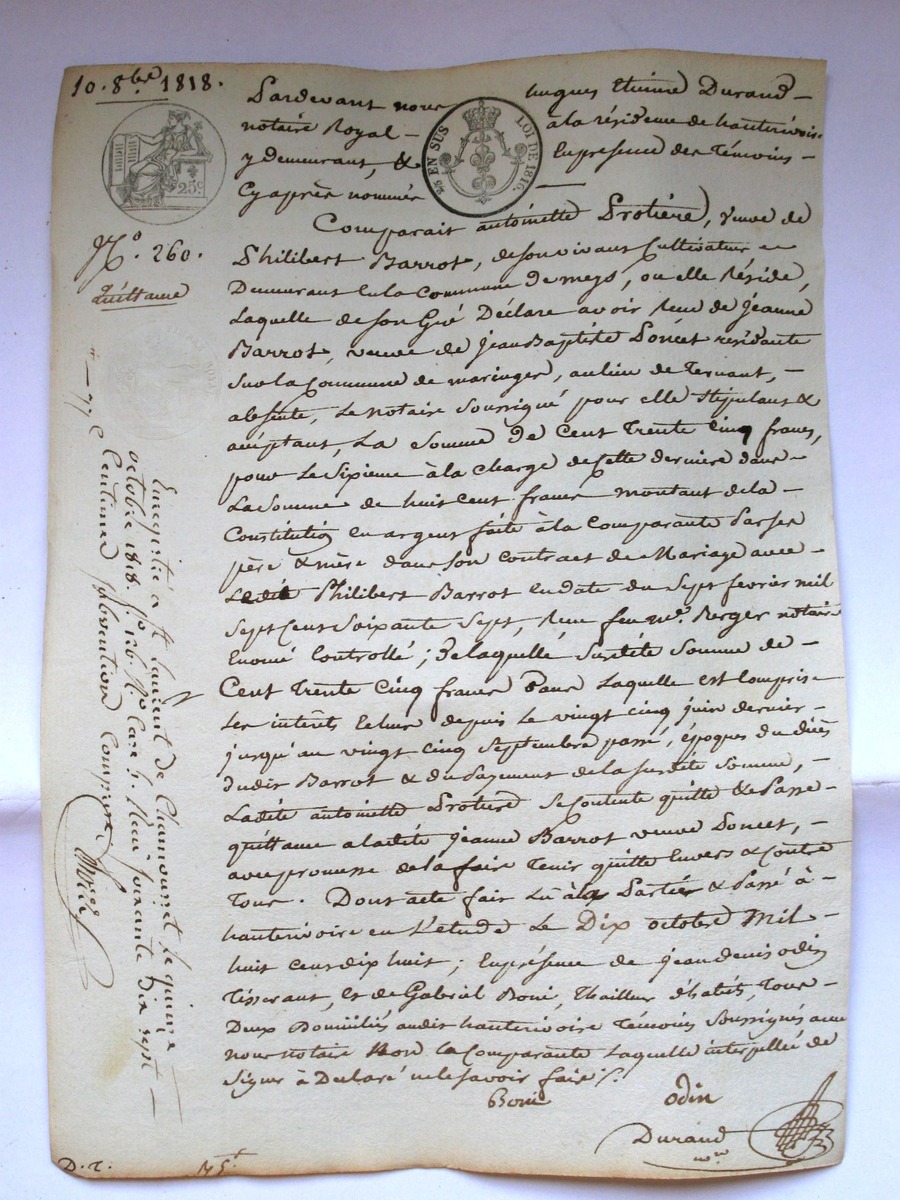 10. 8bre 1818.
Pardevant nous hugues Etienne Durand –
notaire Royal – a la résidence de hauterivoire
y demeurant, & En présence des Témoins –
Cy après nommés
25 EN SUS LOI DE 1816.
25c
No. 260.
quittance
Comparait antoinette Protière, veuve de
Philibert Barrot, de son vivant Cultivateur et
Demeurant En la Commune de meys, ou elle Réside,
Laquelle de son Gré Déclare avoir Reçu de jeanne
Barrot, veuve de jean Baptiste Poncet résidante
sur la Commune de maringes, au lieu de Ternant, –
absente, Le notaire soussigné pour elle stipulant &
acceptant, La somme de Cent Trente Cinq francs,
pour Le sixieme à la charge de Cette derniere dans –
La somme de huit Cent francs montant de la –
Constitution en argent faite à la Comparante Par ses
père & mère dans son Contract de Mariage avec –
Ledit Philibert Barrot En date du sept fevrier mil
sept Cent soixante sept, Reçu feu me. Berger notaire
Enoncé Controllé; De laquelle susdite somme de –
Cent Trente Cinq francs Dans Laquelle est Comprise
Les intérêts Echus depuis Le vingt cinq juin dernier –
jusqu'au vingt cinq Septembre passé, époques du décès
dudit Barrot & du Payement de la susdite somme, –
Ladite antoinette Protière se Contente quitte & Passe –
quittance a ladite jeanne Barrot veuve Poncet, –
avec promesse de la faire Tenir quitte Envers & Contre
Tous. Dont acte fait Lû à la Partie & Passé à –
hauterivoire en L'étude Le Dix octobre Mil –
huit cent dix huit; En présence de jean denis odin
Tisserant, et de Gabriel Boni, Thailleur d'habits, Tous –
Deux Domiciliés audit hauterivoire Témoins Soussignés avec
nous notaire Non la Comparante Laquelle interpellée de
signer à Déclaré ne le savoir faire.
Boni odin
Durand
nre
Enregistré à St laurent de Chamousset le quinze
octobre 1818. fo 126. Ro Case 5. Reçu soixante dix sept –
Centimes subvention Comprise
– 77 c
D. t.